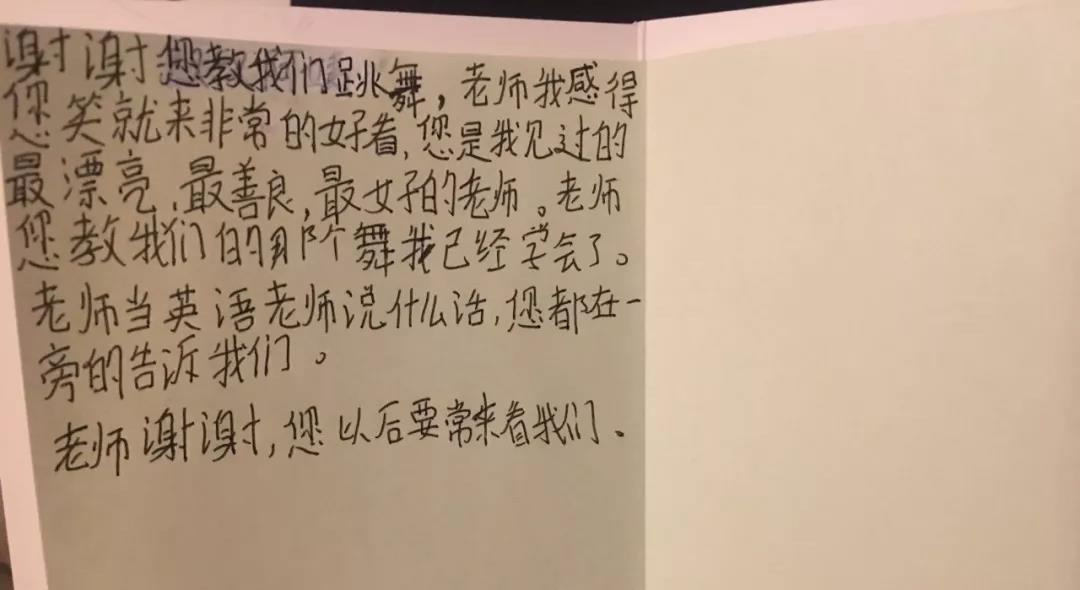 谢谢您教我们跳舞，老师我感得
您笑就来非常的好看，您是我见过的
最漂亮、最善良，最好的老师。老师
您教我们的那个舞我已经学会了。
老师当英语老师说什么话，您都在一
旁的告诉我们。
老师谢谢，您以后要常来看我们。